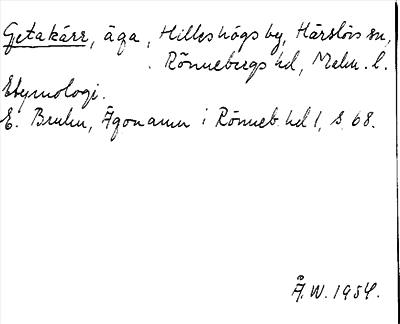 Getakärr, äga, Hilleshögs by, Härslövs sn,
Rönnebergs hd, Malm. l.
Etymologi.
E. Bruhn, Ägonamn i Rönneb. hd 1, s. 68.
Å.W. 1954.